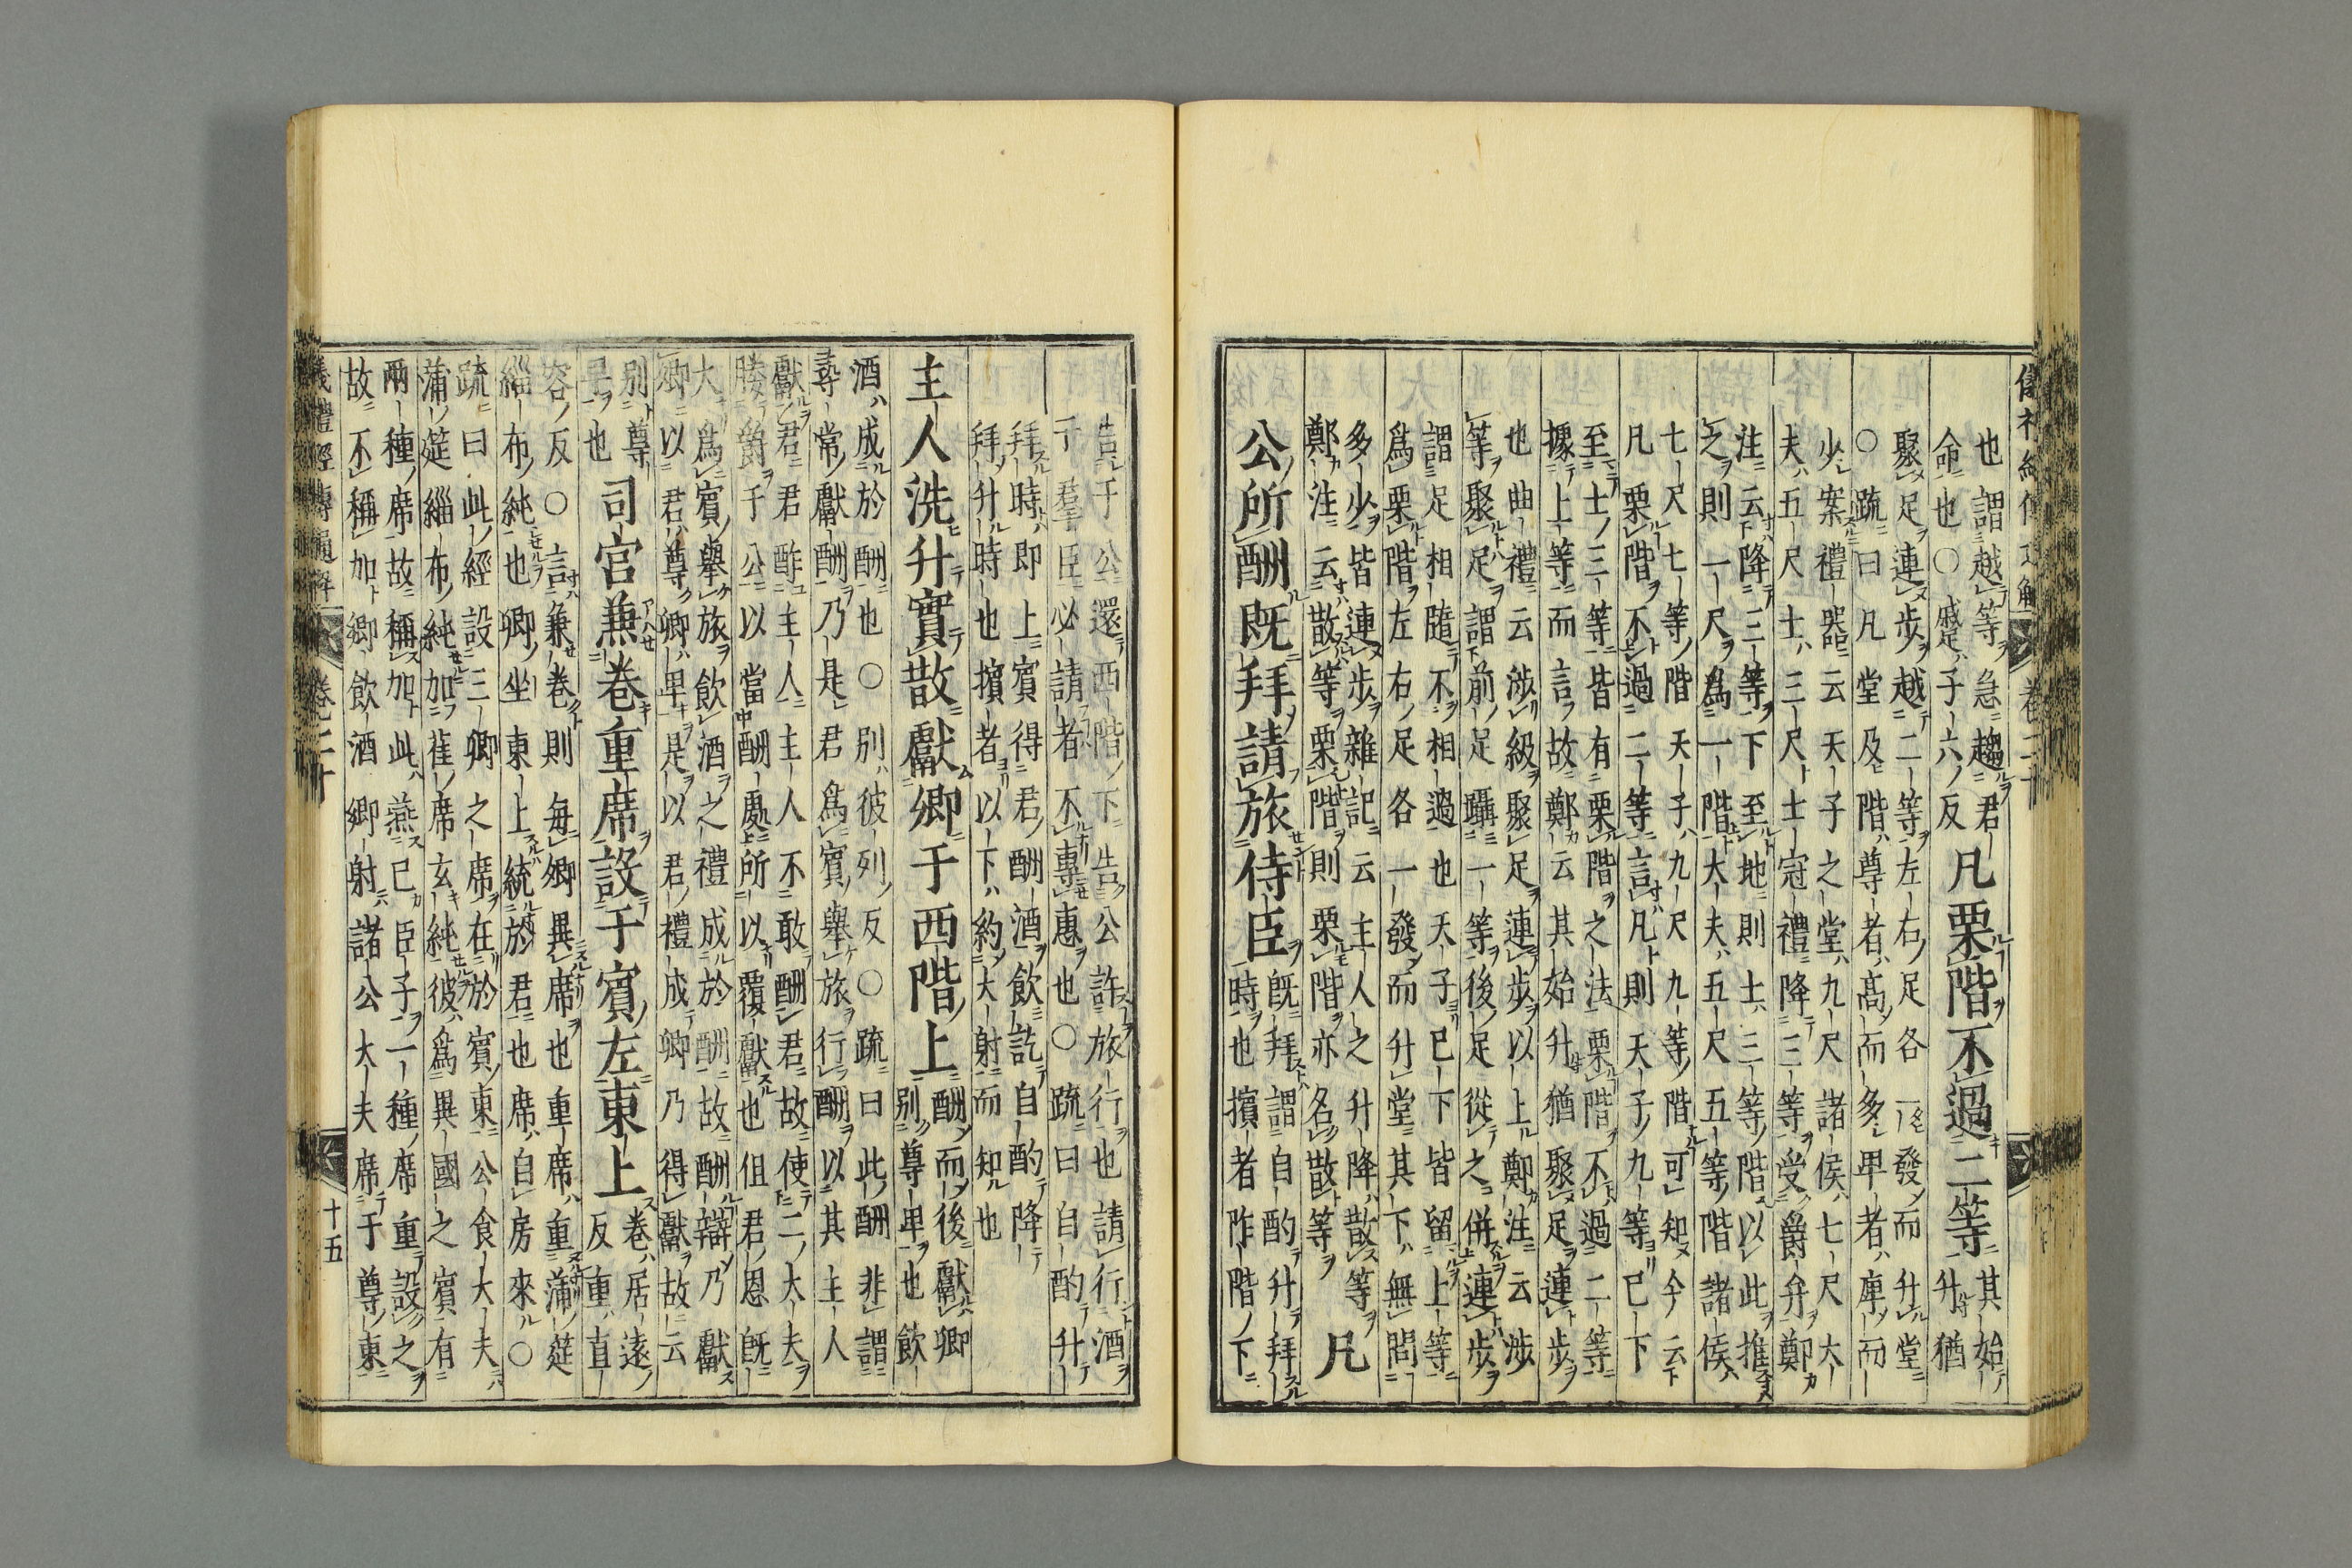 也謂越等急趨君
命也○蹙子六反
凡栗階不過二等
其始升猶
聚足連步越二等左右足各一發而升堂
○疏曰凡堂及階尊者高而多卑者庳而
少案禮器云天子之堂九尺諸侯七尺大
夫五尺士三尺士冠禮降三等受爵弁鄭
注云降三等下至地則士三等階以此推
之則一尺為一階大夫五尺五等階諸侯
七尺七等階天子九尺九等階可知今云
凡栗階不過二等言凡則天子九等已下
至士三等皆有栗階之法栗階不過二等
據上等而言故鄭云其始升猶聚足連步
也曲禮云涉級聚足連步以上鄭注云涉
等聚足謂前足躡一等後足從之併連步
謂足相隨不相過也天子已下皆留上等
為栗階左右足各一發而升堂其下無問
多少皆連步雜記云主人之升降散等
鄭注云散等栗階則栗階亦名散等
凡
公所酬既拜請旅侍臣
既拜謂自酌升拜
時也擯者阼階下
告于公還西階下告公許旅行也請行酒
于羣臣必請者不專惠也○疏曰自酌升
拜時即上賓得君酬酒飲訖自酌降
拜升時也擯者以下約大射而知也
主人洗升實散獻卿于西階上
酬而後獻卿
別尊卑也飲
酒成於酬也○別彼列反○疏曰此酬非謂
尋常獻酬乃是君為賓舉旅行酬以其主人
獻君君酢主人主人不敢酬君故使二大夫
媵爵于公以當酬處所以覆獻也但君恩既
大為賓舉旅飲酒之禮成於酬故酬辯乃獻
卿以君尊卿卑是以君禮成卿乃得獻故云
別尊
卑也
司宮兼卷重席設于賓左東上
卷居遠
反重直
容反○言兼卷則每卿異席也重席重蒲筵
緇布純也卿坐東上統於君也席自房來○
疏曰此經設三卿之席在於賓東公食大夫
蒲筵緇布純加萑席玄純彼為異國之賓有
兩種席故稱加此燕已臣子一種席重設之
故不稱加卿飲酒卿射諸公大夫席于尊東
儀禮經傳通解
卷二十
十五